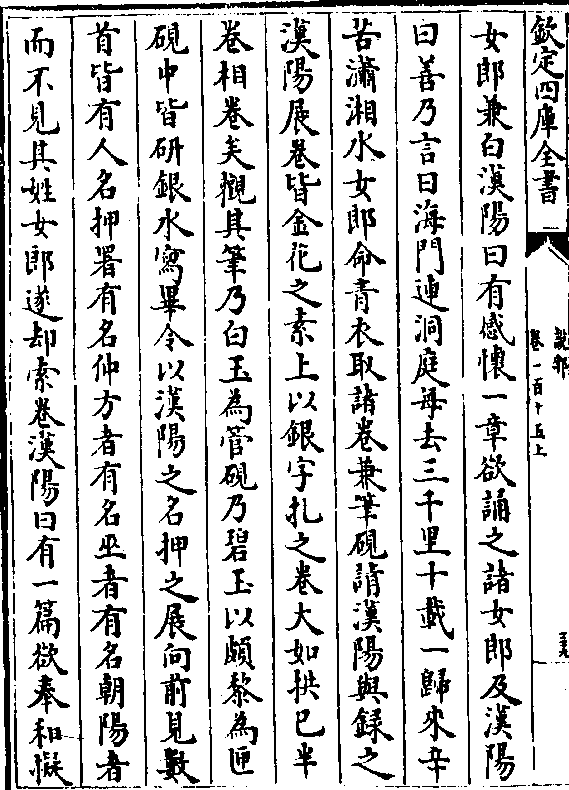 欽定四庫全書
說郛
卷一百十五上
女郎兼白漢陽曰有感懷一章欲誦之諸女郎及漢陽
曰善乃言曰海門連洞庭每去三千里十載一歸來辛
苦瀟湘水女郎命青衣取諸卷兼筆硯請漢陽與録之
漢陽展卷皆金花之素上以銀字札之卷大如拱已半
卷相卷矣觀其筆乃白玉為管硯乃碧玉以頗黎為匣
硯中皆研銀水寫畢令以漢陽之名押之展向前見數
首皆有人名押署有名仲方者有名巫者有名朝陽者
而不見其姓女郎遂却索卷漢陽曰有一篇欲奉和擬